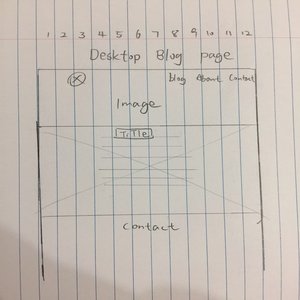 1 2 3 4 5 6 7 8 9 10 11 12
Desktop Blog page
blog About Contact
Image
Title
Contact